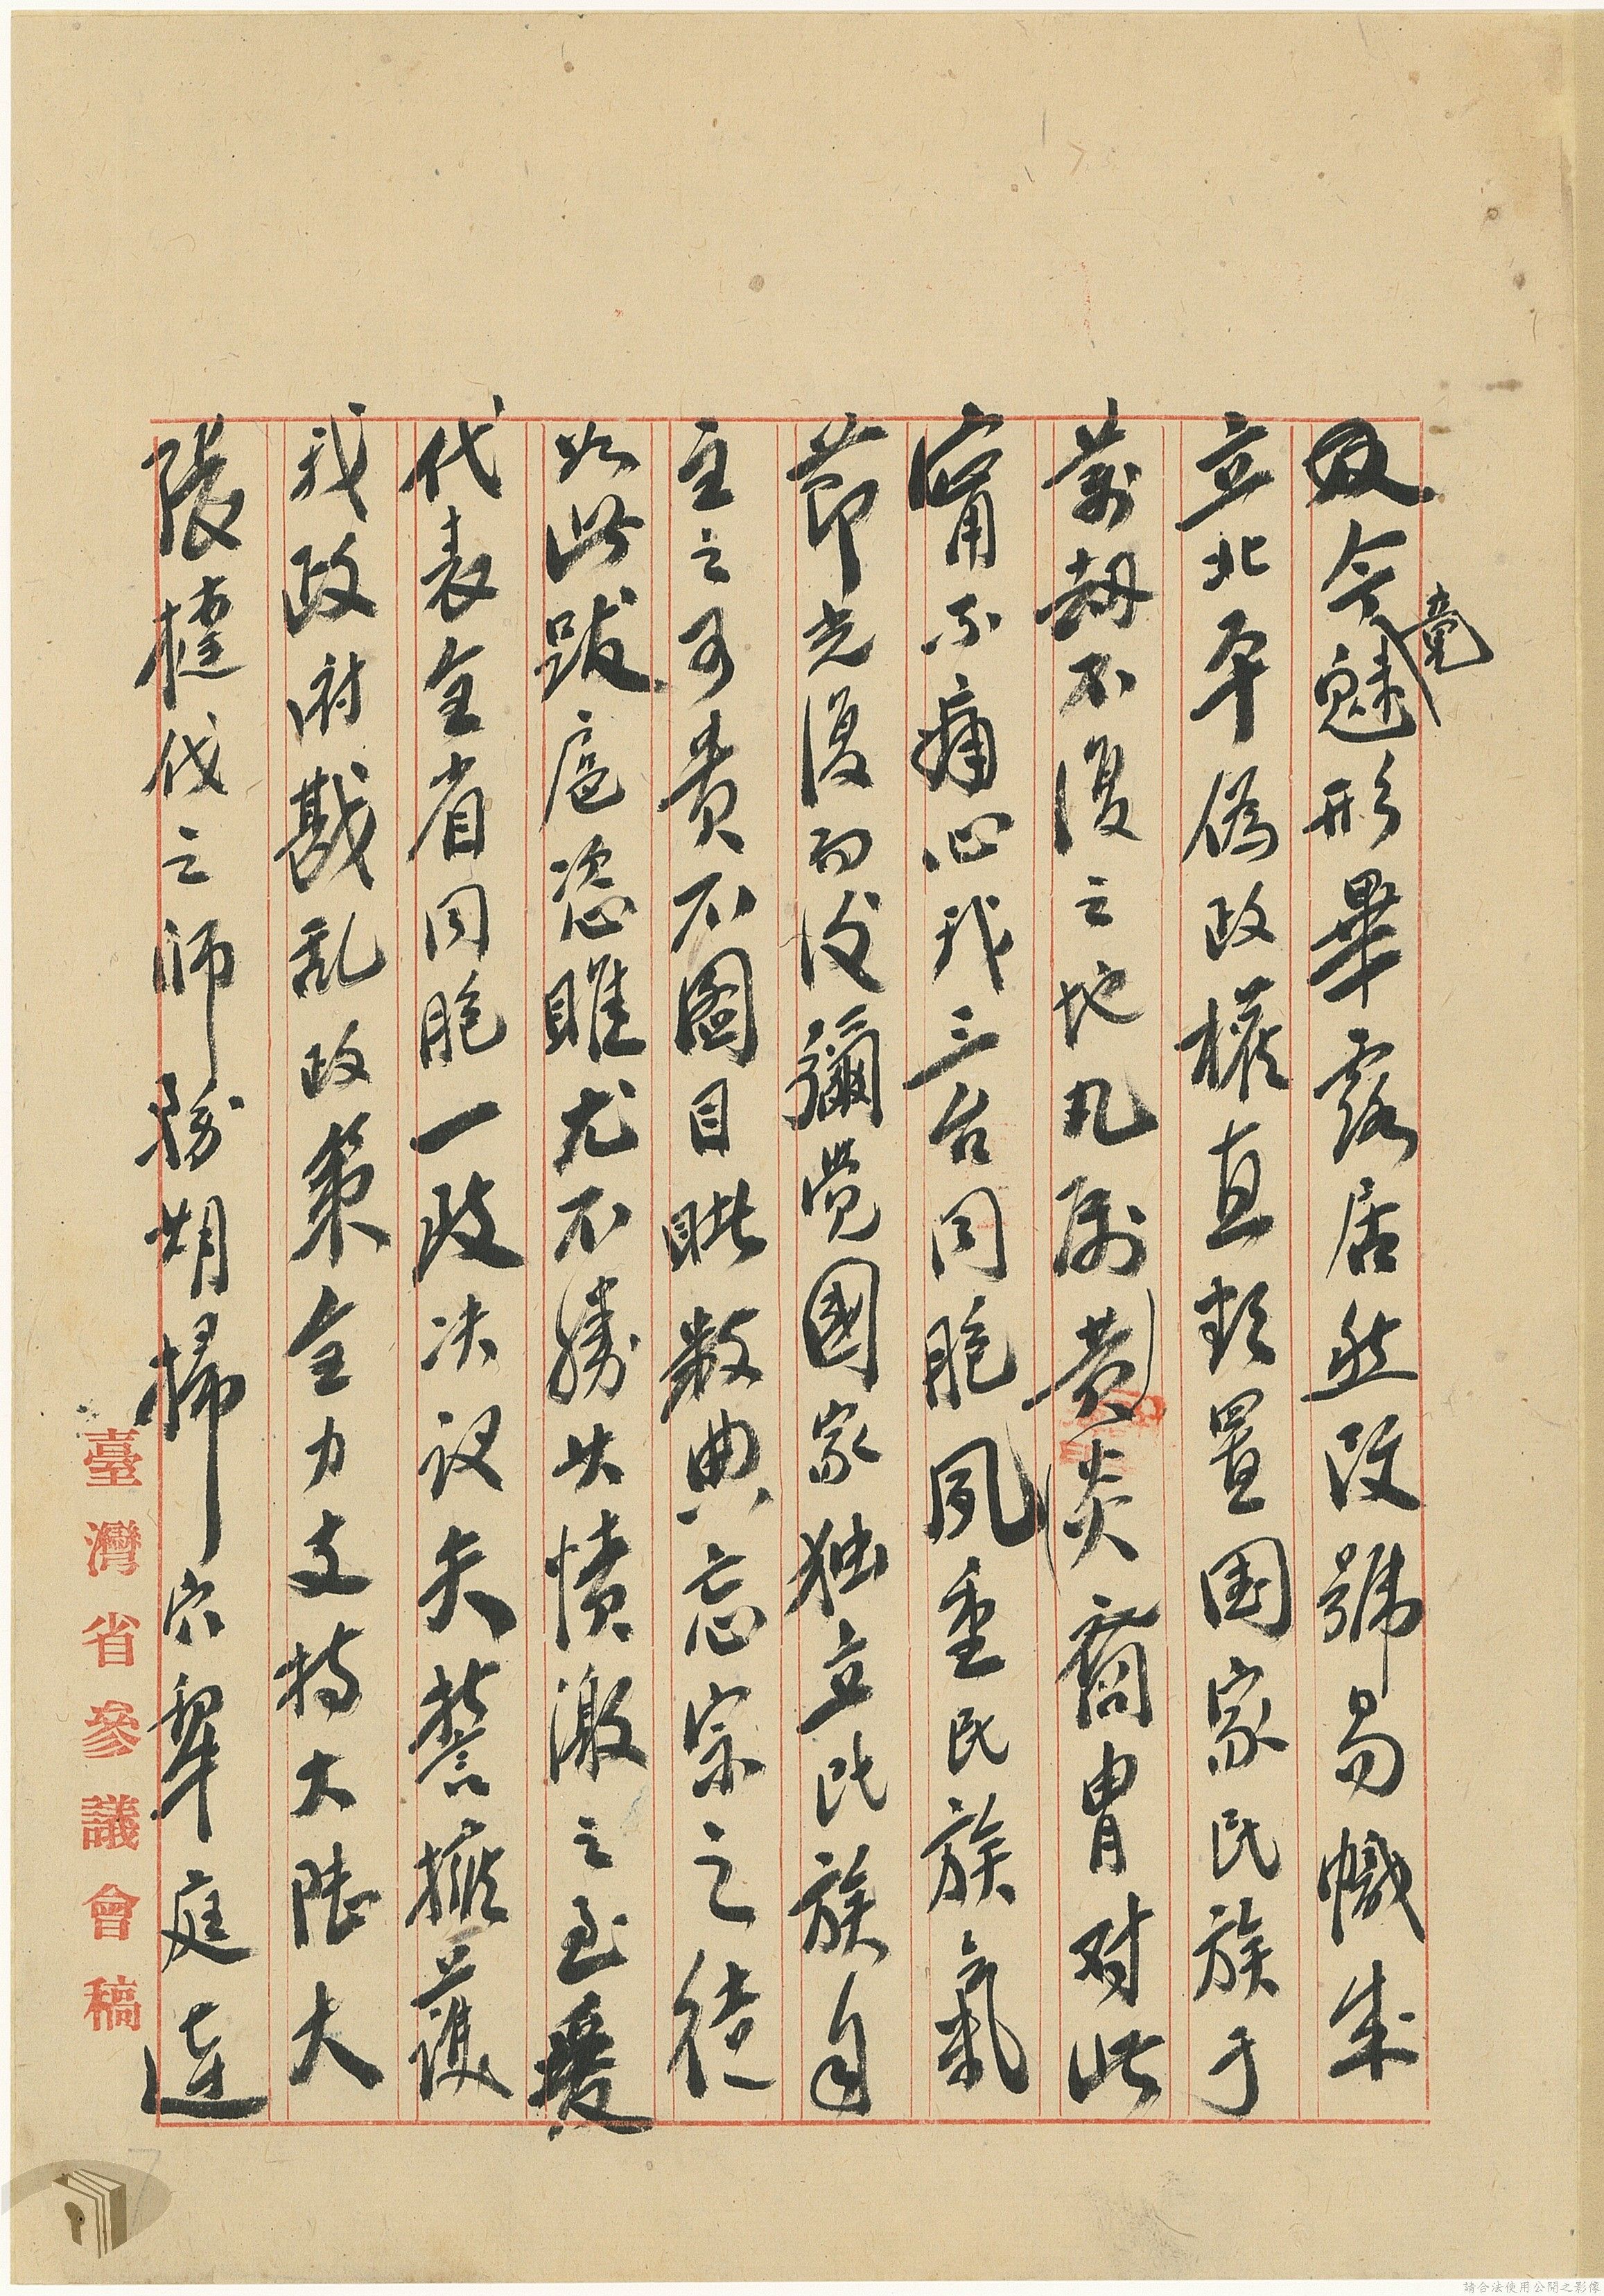 及今竟魅形畢露居然改號易幟成
立北平偽政權直欲置国家民族于
萬劫不復之地凡属黄炎裔胄对此
寧不痛心我三台同胞夙重民族氣
節光復而後彌覺國家独立民族自
主之可貴不圖目眦数典忘宗之徒
如此跋扈恣睢尤不勝其憤激之至爰
代表全省同胞一致决议矢誓擁護
我政府戡乱政策全力支持大陸大
張撻伐之师務期掃穴犁庭達
臺灣省參議會稿
請合法使用公開之影像